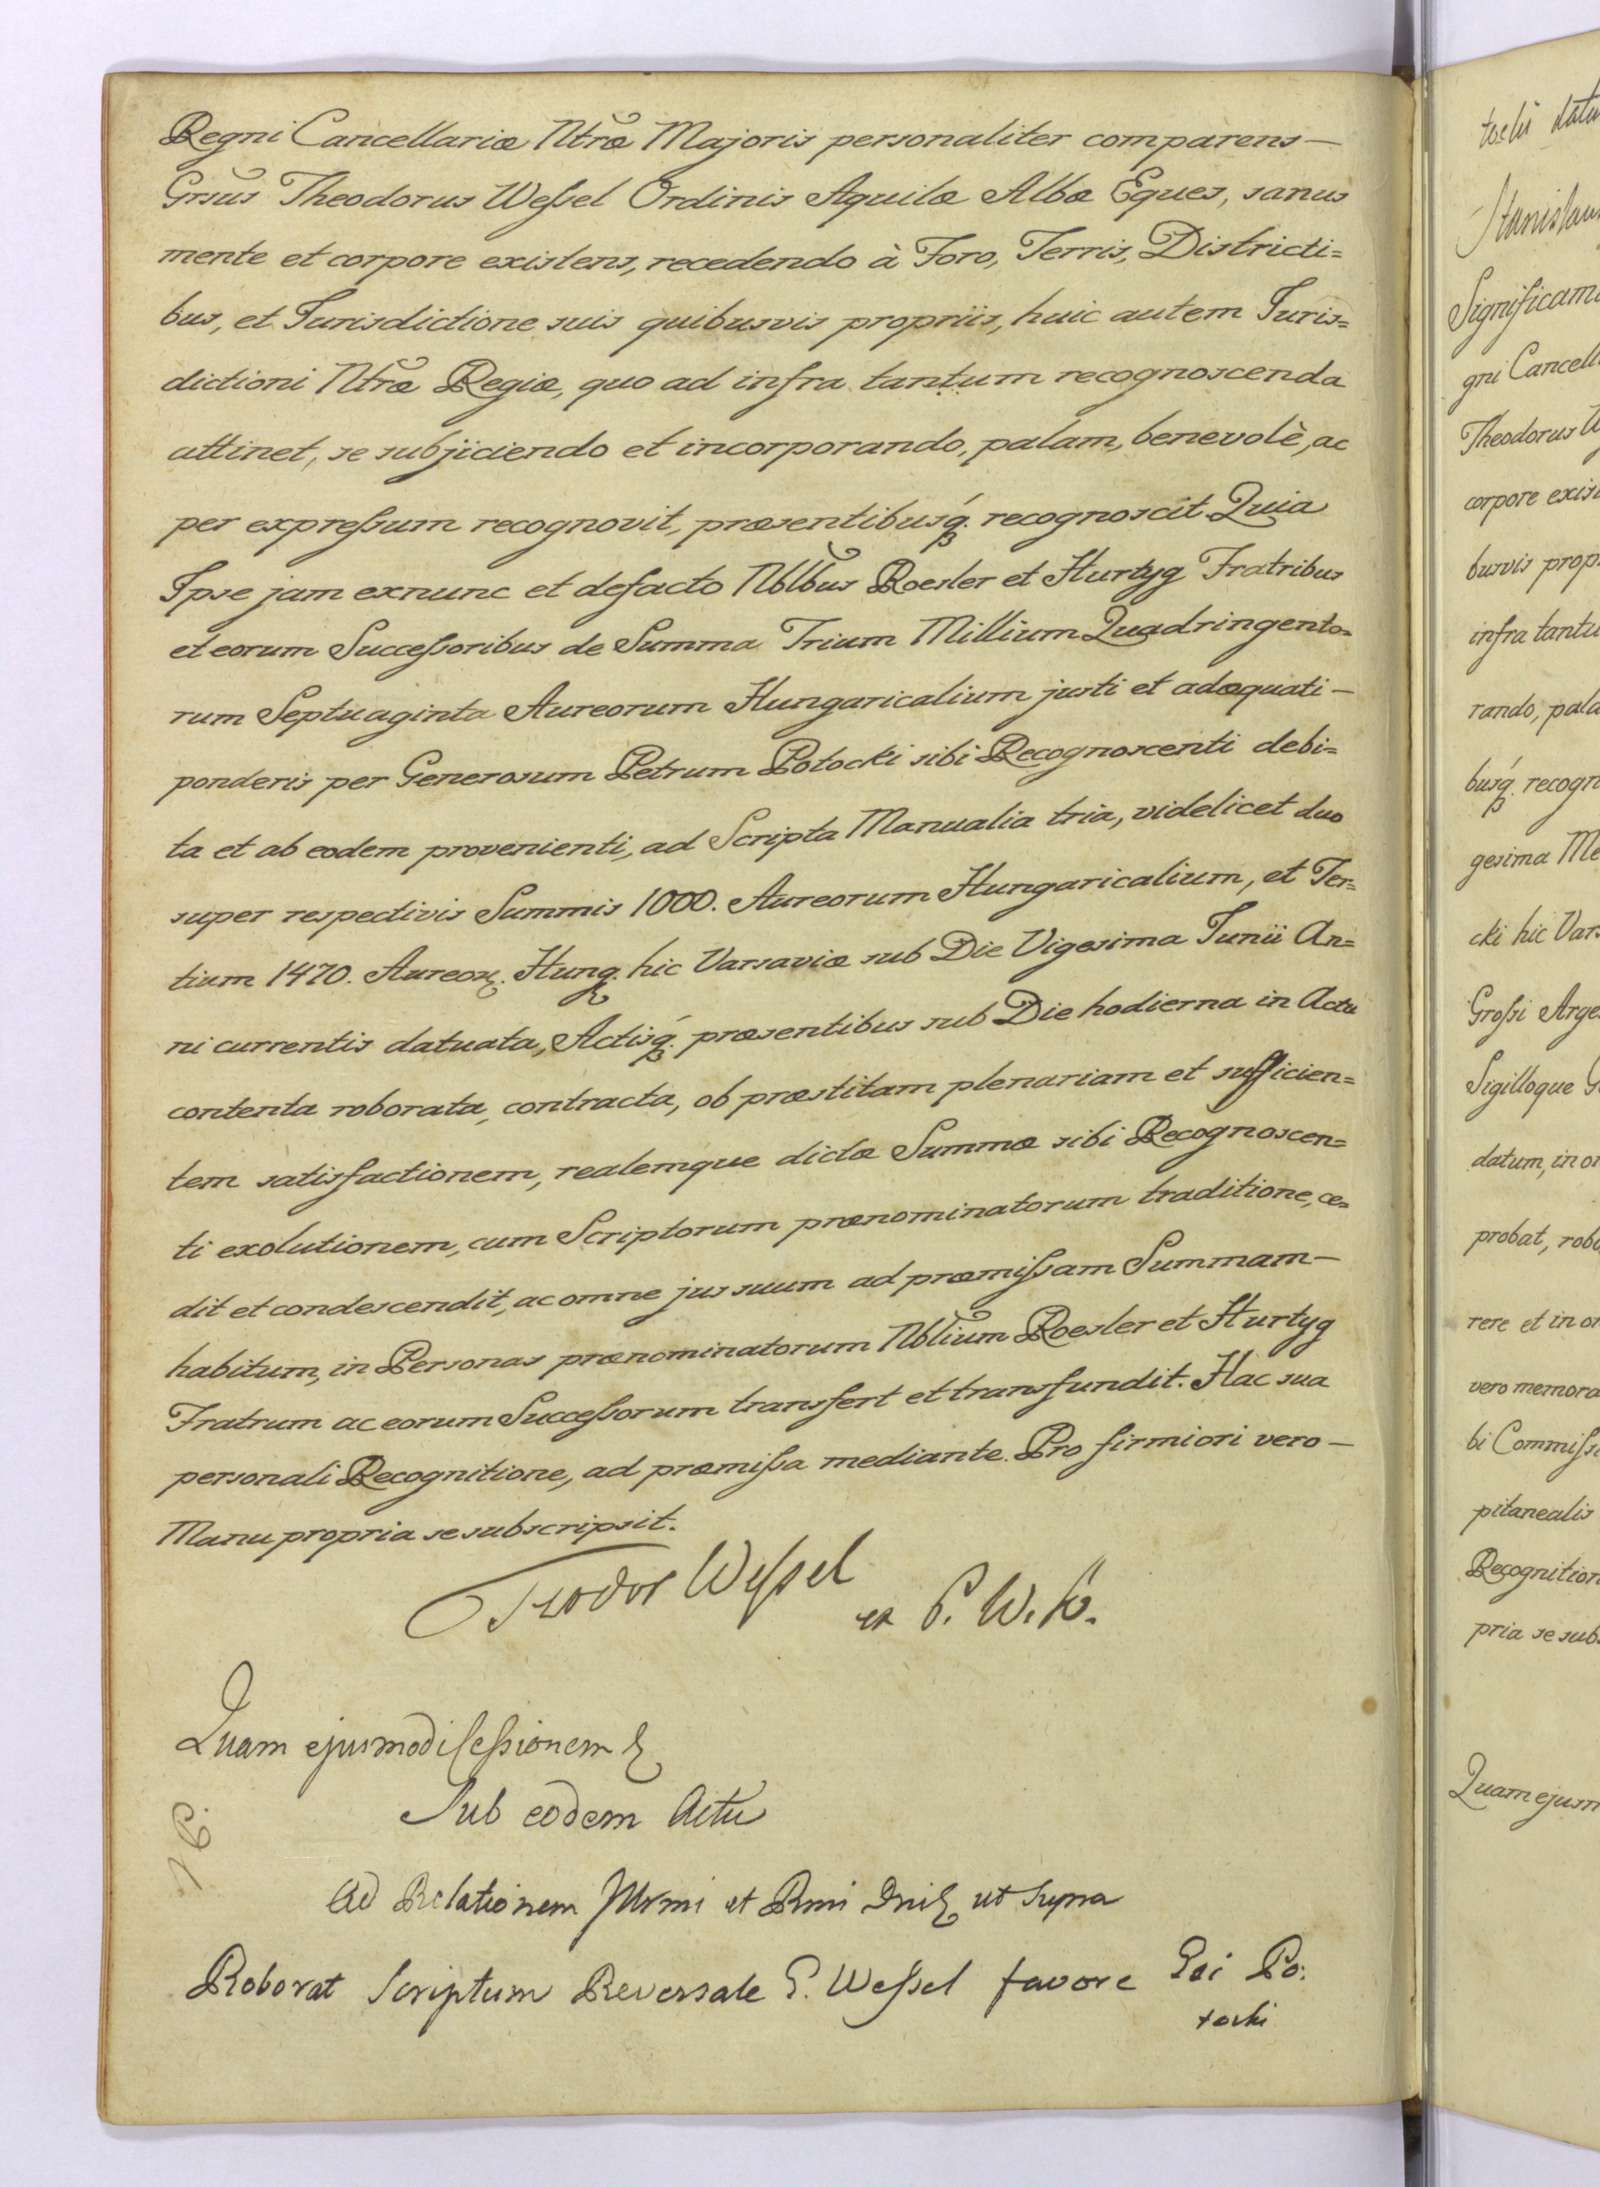 Regni Cancellariæ Ntræ Majoris personaliter comparens —
Grsus Theodorus Weſsel Ordinis Aquilæ Albæ Eques, sanus
mente et corpore existens, recedendo à Foro, Terris, Districti=
bus, et Jurisdictione suis quibusvis propriis, huic autem Juris=
dictioni Ntræ Regiæ, quo ad infra tantum recognoscenda
attinet, se subjiciendo et incorporando, palam, benevolè, ac
per expreſsum recognovit, præsentibusq́. recognoscit Quia
Ipse jam exnunc et defacto Nblbus Roesler et Hurtyg Fratribus
et eorum Succeſsoribus de Summa Trium Millium Quadringento=
rum Septuaginta Aureorum Hungaricalium justi et adæquati —
ponderis per Generosum Petrum Potocki sibi Recognoscenti debi=
ta et ab eodem provenienti, ad Scripta Manualia tria, videlicet duo
super respectivis Summis 1000. Aureorum Hungaricalium, et Ter=
tium 1470. Aureoꝝ. Hung. hic Varsaviæ sub Die Vigesima Junii An=
ni currentis datuata, Actisq́. præsentibus sub Die hodierna in Actu
contenta roborata, contracta, ob præstitam plenariam et sufficien=
tem satisfactionem, realemque dictæ Summæ sibi Recognoscen=
ti exolutionem, cum Scriptorum prænominatorum traditione, ce=
dit et condescendit, ac omne jus suum ad præmiſsam Summam —
habitum, in Personas prænominatorum Nblium Roesler et Hurtyg
Fratrum ac eorum Succeſsorum transfert et transfundit. Hac sua
personali Recognitione, ad præmiſsa mediante. Pro firmiori vero —
Manu propria se subscripsit.
Teodor Weſsel
P. W. K.
Quam ejusmodi Ceſsionem
Sub eodem Actu
Ad Relationem Illrmi et Rmi Dni ut supra
Roborat Scriptum Reversale G. Weſsel favore Gsi Po:
tocki
tocki datu
Stanislaus
Significam
gni Cancell
Theodorus W
corpore exis
busvis prop
infra tantu
rando, pala
busq́. recogn
gesima Me
cki hic Vars
Groſsi Arge
Sigilloque G
datum, in or
probat, robo
rere et in or
vero memora
bi Commiſsi
pitanealis
Recognition
pria se sub
Quam ejusm